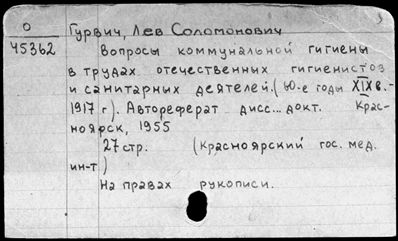 О Гурвич, Лев Соломонович
45362 Вопросы коммунальной гигиены
в трудах отечественных гигиенистов
и санитарных деятелей. (60-е годы XIX в.-
1917 г). Автореферат дисс... докт. Крас-
ноярск, 1955
27 стр. (Красноярский гос. мед.
ин-т)
На правах рукописи.